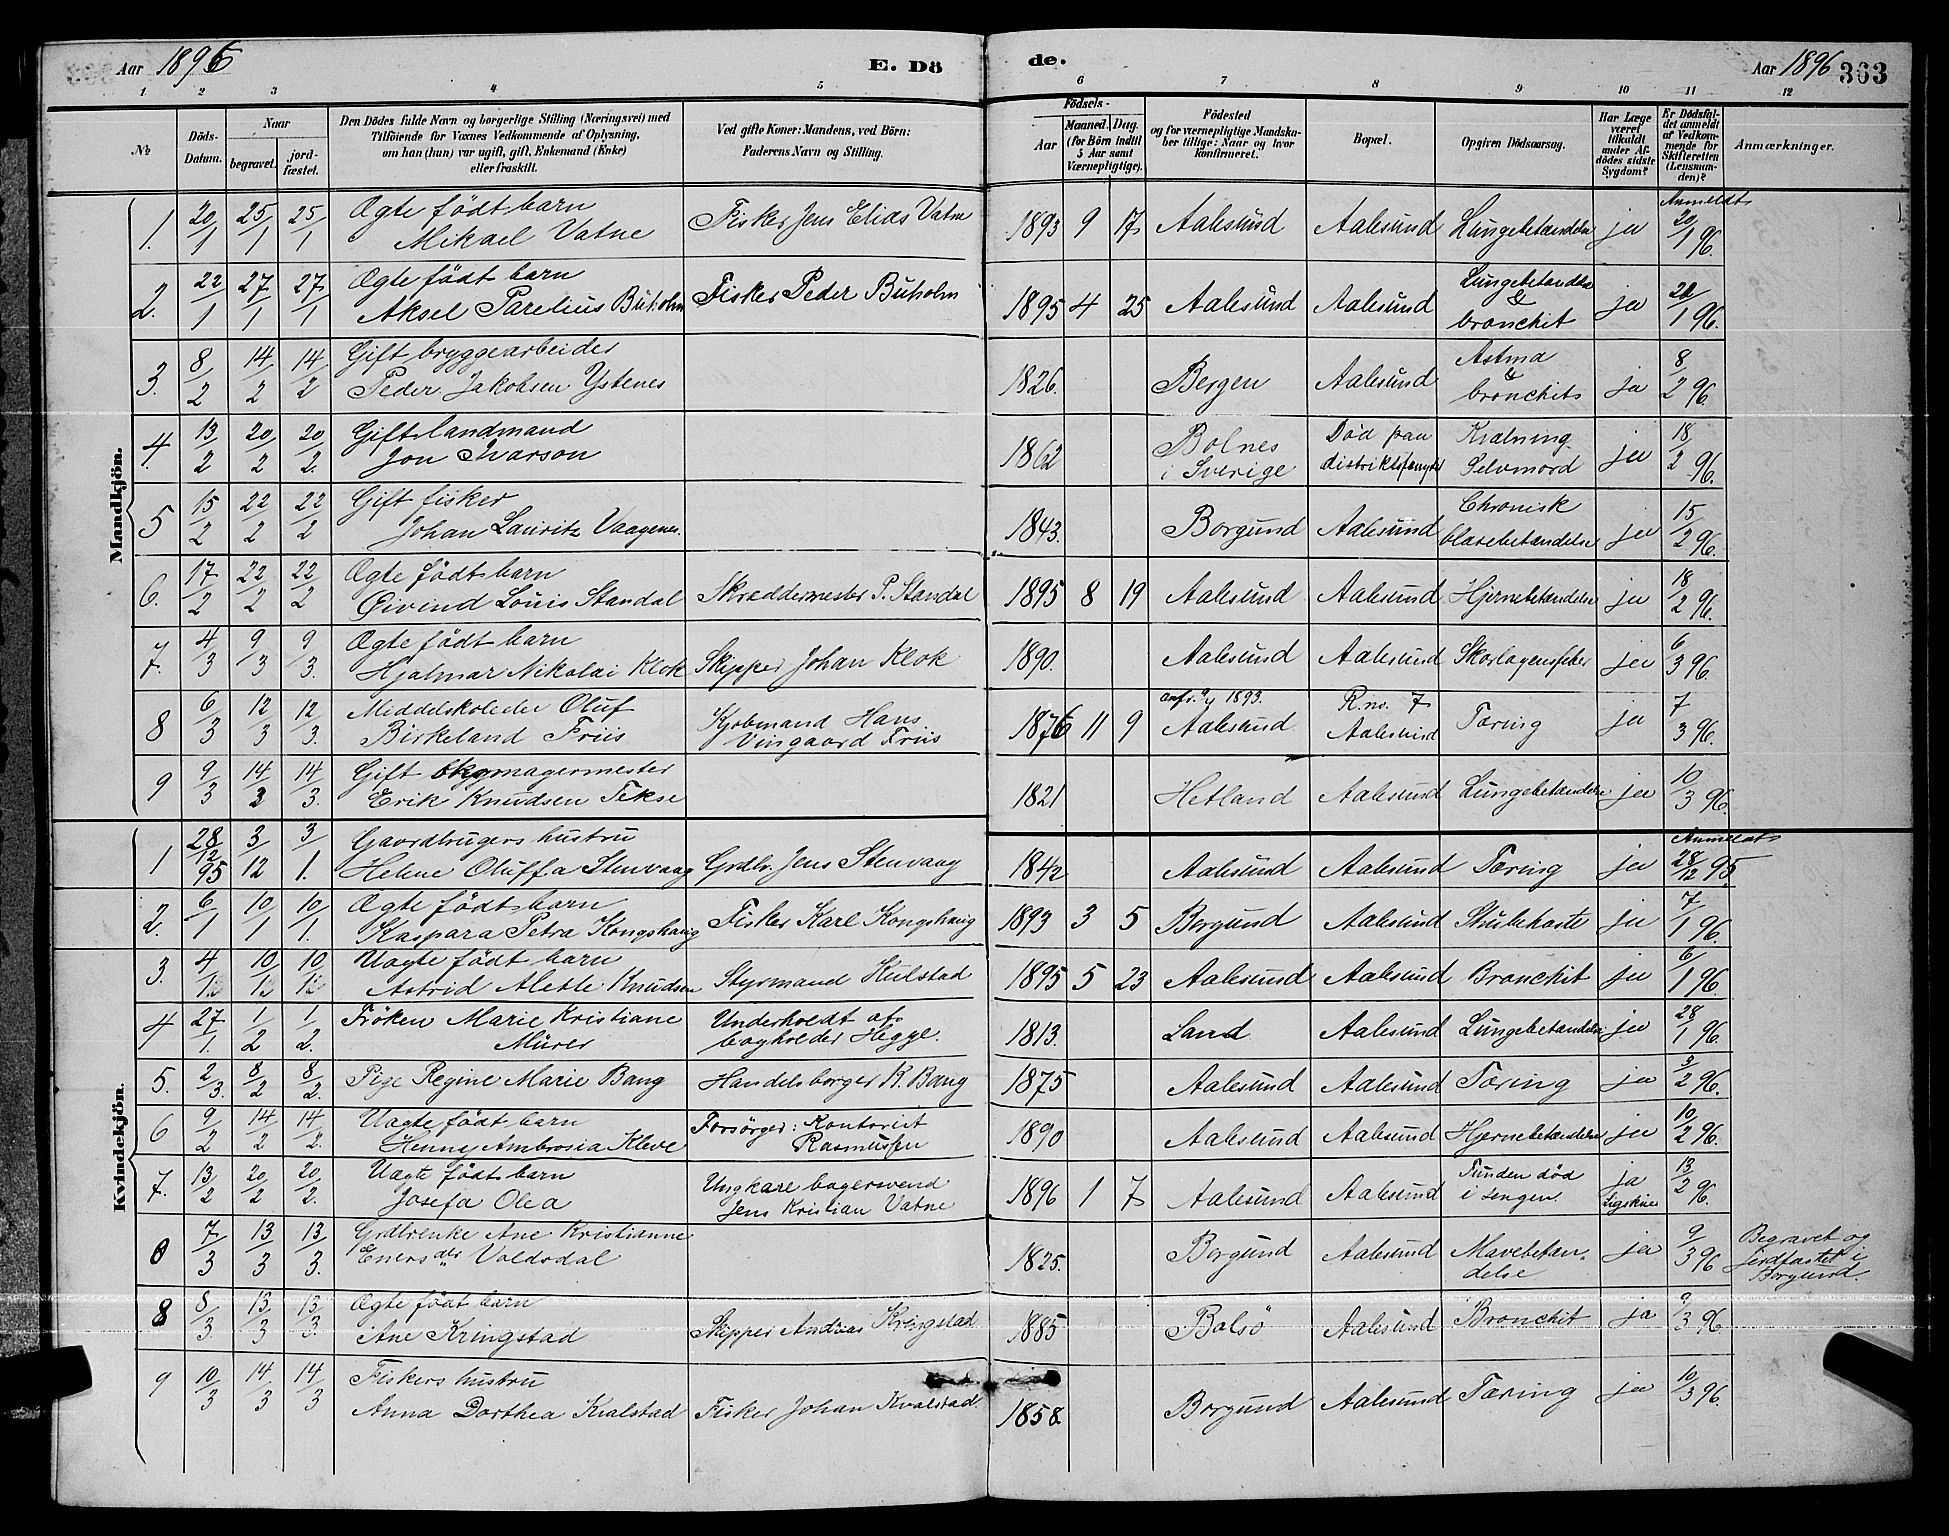 Aar 1896
E. Dö
de.
Aar 1896
363
1. 2 3 4 5
6 7 8 9 10 11 12
No
Döds-
Datum.
Naar
begravet.
jord-
fæstet.
Den Dödes fulde Navn og borgerlige Stilling (Næringsvei) med
Tilföiende for Voxnes Vedkommende af Oplysning,
om han (hun) var ugift, gift, Enkemand (Enke)
eller fraskilt.
Ved gifte Koner: Mandens, ved Börn:
Faderens Navn og Stilling.
Födsels-
Aar
Maaned.
Dag.
(for Börn indtil
5 Aar samt
Værnepligtige).
Födested
og for værnepligtige Mandska-
ber tillige: Naar og hvor
konfirmeret.
Bopæl.
Opgiven Dödsaarsag.
Har Læge
været
tilkaldt
under Af-
dödes sidste
Sygdom?
Er Dödsfal-
det anmeldt
af Vedkom-
mende for
Skifteretten
(Lensman-
den)?
Anmærkninger.
Mandkjön.
1. 20/1 25/1 25/1 Ægte födt barn
Mikael Vatne
Fisker Jens Elias Vatne
1893 9 17 Aalesund Aalesund Lungebetændelse ja Anmeldt
20/1 96.
2. 22/1 27/1 27/1 Ægte födt barn
Aksel Parelius Buholm
Fisker Peder Buholm
1895 4 25 Aalesund Aalesund Lungebetændelse
&
bronchit ja /1 96.
3. 8/2 14/2 14/2 Gift bryggearbeider
Peder Jakobsen Ystenes
1826. Bergen Aalesund Astma
&
bronchits ja 8/2 96.
4. 13/2 20/2 20/2. Gift landmand
Jon Ivarson
1862 Bolnes
i Sverige Död paa
Kvælning
Selvmord ja 18/2 96.
5 15/2 22/2 22/2 Gift fisker
Johan Lauritz Vaagenes.
1843. Borgund Aalesund Chronisk
blærebetændelse ja 15/2 96.
6. 17/2 22/2 22/2 Ægte födt barn
Øivind Louis Standal
Skræddermester P. Standal
1895 8 19 Aalesund Aalesund Hjernebetændelse ja 18/2 96.
7. 4/3 9/3 9/3. Ægte födt barn
Hjalmar Nikolai Klok
Skipper Johan Klok
1890. Aalesund Aalesund Skarlagensfeber ja 6/3 96.
8 6/3 12/3 12/3. Middelskoleelev Oluf
Birkeland Friis
Kjöbmand Hans
Vingaard Friis
1876 11 9 1893.
Aalesund R. no. 7
Aalesund Tæring ja 7/3 96.
9 9/3 14/3 14/3. Gift
Erik Knudsen Tekse
1821 Hetland Aalesund Lungebetændelse ja 10/3 96.
Kvindekjön.
1 28/12 95 3/12 3/1. Gaardbrugers hustru
Helene Oluffa Stenvaag
Grdbr. Jens Stenvaag
1842 Aalesund Aalesund Tæring ja Anmeldt
28/12 95.
2. 6/1 10/1 10/1. Ægte födt barn
Kaspara Petra Kongshaug
Fisker Karl Kongshaug
1893 3 5 Borgund Aalesund Strubehoste ja 7/1 96.
3. 4/1 10/1 10/1 Uægte födt barn
Astrid Alette Knudsen
Styrmand Kulstad
1895 5 23 Aalesund Aalesund Bronchit ja 6/1 96.
4 27/1. 1/2 1/2. Fröken Marie Kristiane
Mürer
Underholdt af
bogholder Hegge.
1813. Land Aalesund Lungebetændelse ja 28/1 96.
5. 2/3. 8/2 8/2. Pige Regine Marie Bang
Handelsborger R. Bang
1875 Aalesund Aalesund Tæring ja 3/2 96.
6 9/2 14/2 14/2. Uægte födt barn
Henny Ambrosia Kleve
Forsörger: Kontorist
Rasmussen
1890 Aalesund Aalesund Hjernebetændelse ja 10/2 96.
7. 13/2 20/2 20/2. Uægte födt barn
Josefa Olea
Ungkarl bagersvend
Jens Kristian Vatne
1896 1 7 Aalesund Aalesund Funden död
i sengen. ja
13/2 96.
8 7/3 13/3 13/3. Grdbrenke Ane Kristianne
Voldsdal
1825. Borgund Aalesund Mavebetæn-
delse ja 9/3 96 Begravet og
jordfæstet i
Borgund.
8 8/3. 13/3 13/3. Ægte födt barn
Ane Kringstad
Skipper Andreas Kringstad
1885 Bolsö Aalesund Bronchit ja 9/3 96
9 10/3 14/3 14/3 Fiskers hustru
Anna Dorthea Kvalstad
Fisker Johan Kvalstad.
1858. Borgund Aalesund Tæring ja 10/3 96.